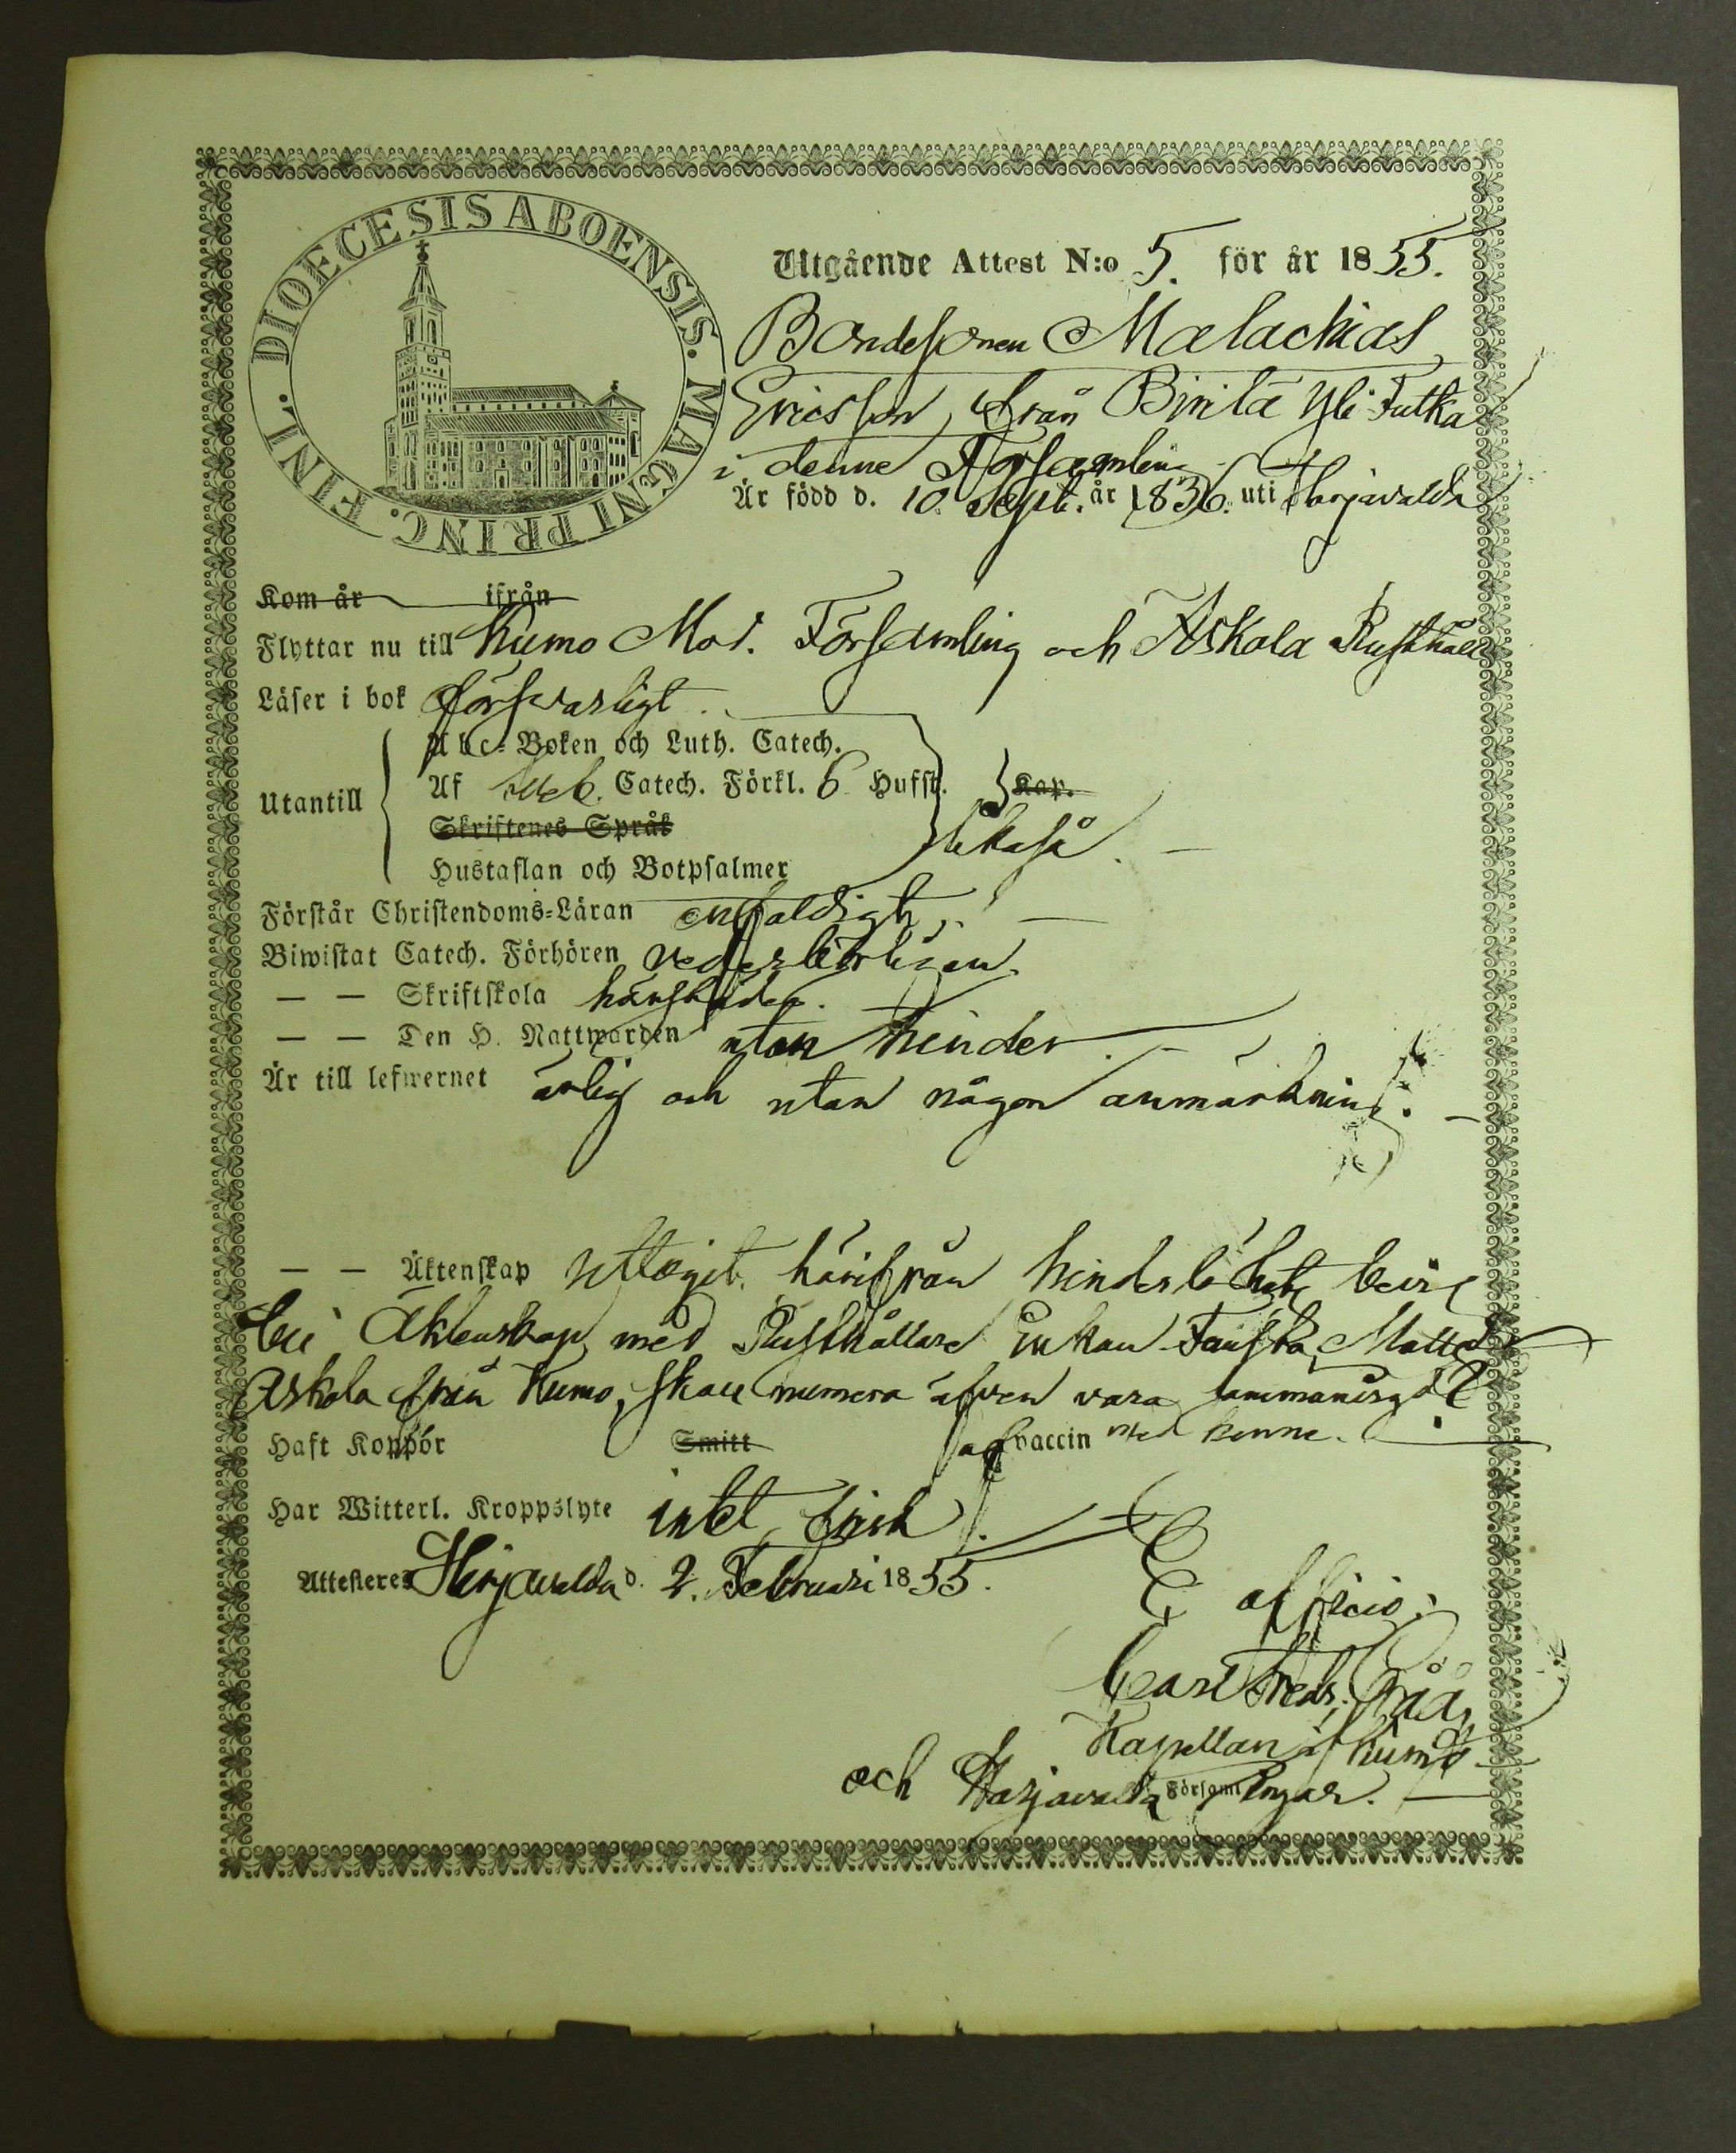 DIOECESIS ABOENSIS. MAGNI PRINC. FINL.
Utgående Attest N:o 5. för år 1855.
Bondesonen Malachias
Ericsson, från Birilä Yli Jutka
i denne Församling
Är född d. 10 Sept. år 1836. uti Harjavalda
Kom år ifrån
Flyttar nu till Kumo Mod. Församling och Askola Rusthåll
Läser i bok försvarligt.
Abc-Boken och Luth. Catech.
Utantill Af Catech. Förkl. 6 Hufst. Kap.
Skriftenes Språk
likaså.
Hustaflan och Botpsalmer
Förstår Christendoms-Läran enfaldigt.
Biwistat Catech. Förhören vederbörligen.
— — Skriftskola härstädes.
— — Den H. Nattwarden utan hinder.
Är till lefwernet ärlig och utan någon anmärkning.
— — Äktenskap uttagit härifrån hinderslöshets bevis
till Äktenskap med Rusthållare Enkan Matts
Askola från Kumo, skall numera äfven vara sammanvigd
Haft Koppor Smitt af vaccin
Har Witterl. Kroppslyte intet, frisk.
Attesteres Harjavalda d. 2. Februari 1855.
E officio:
Carl Fredr.
Kapellan i Kumo
och Harjavalda Församlingar.